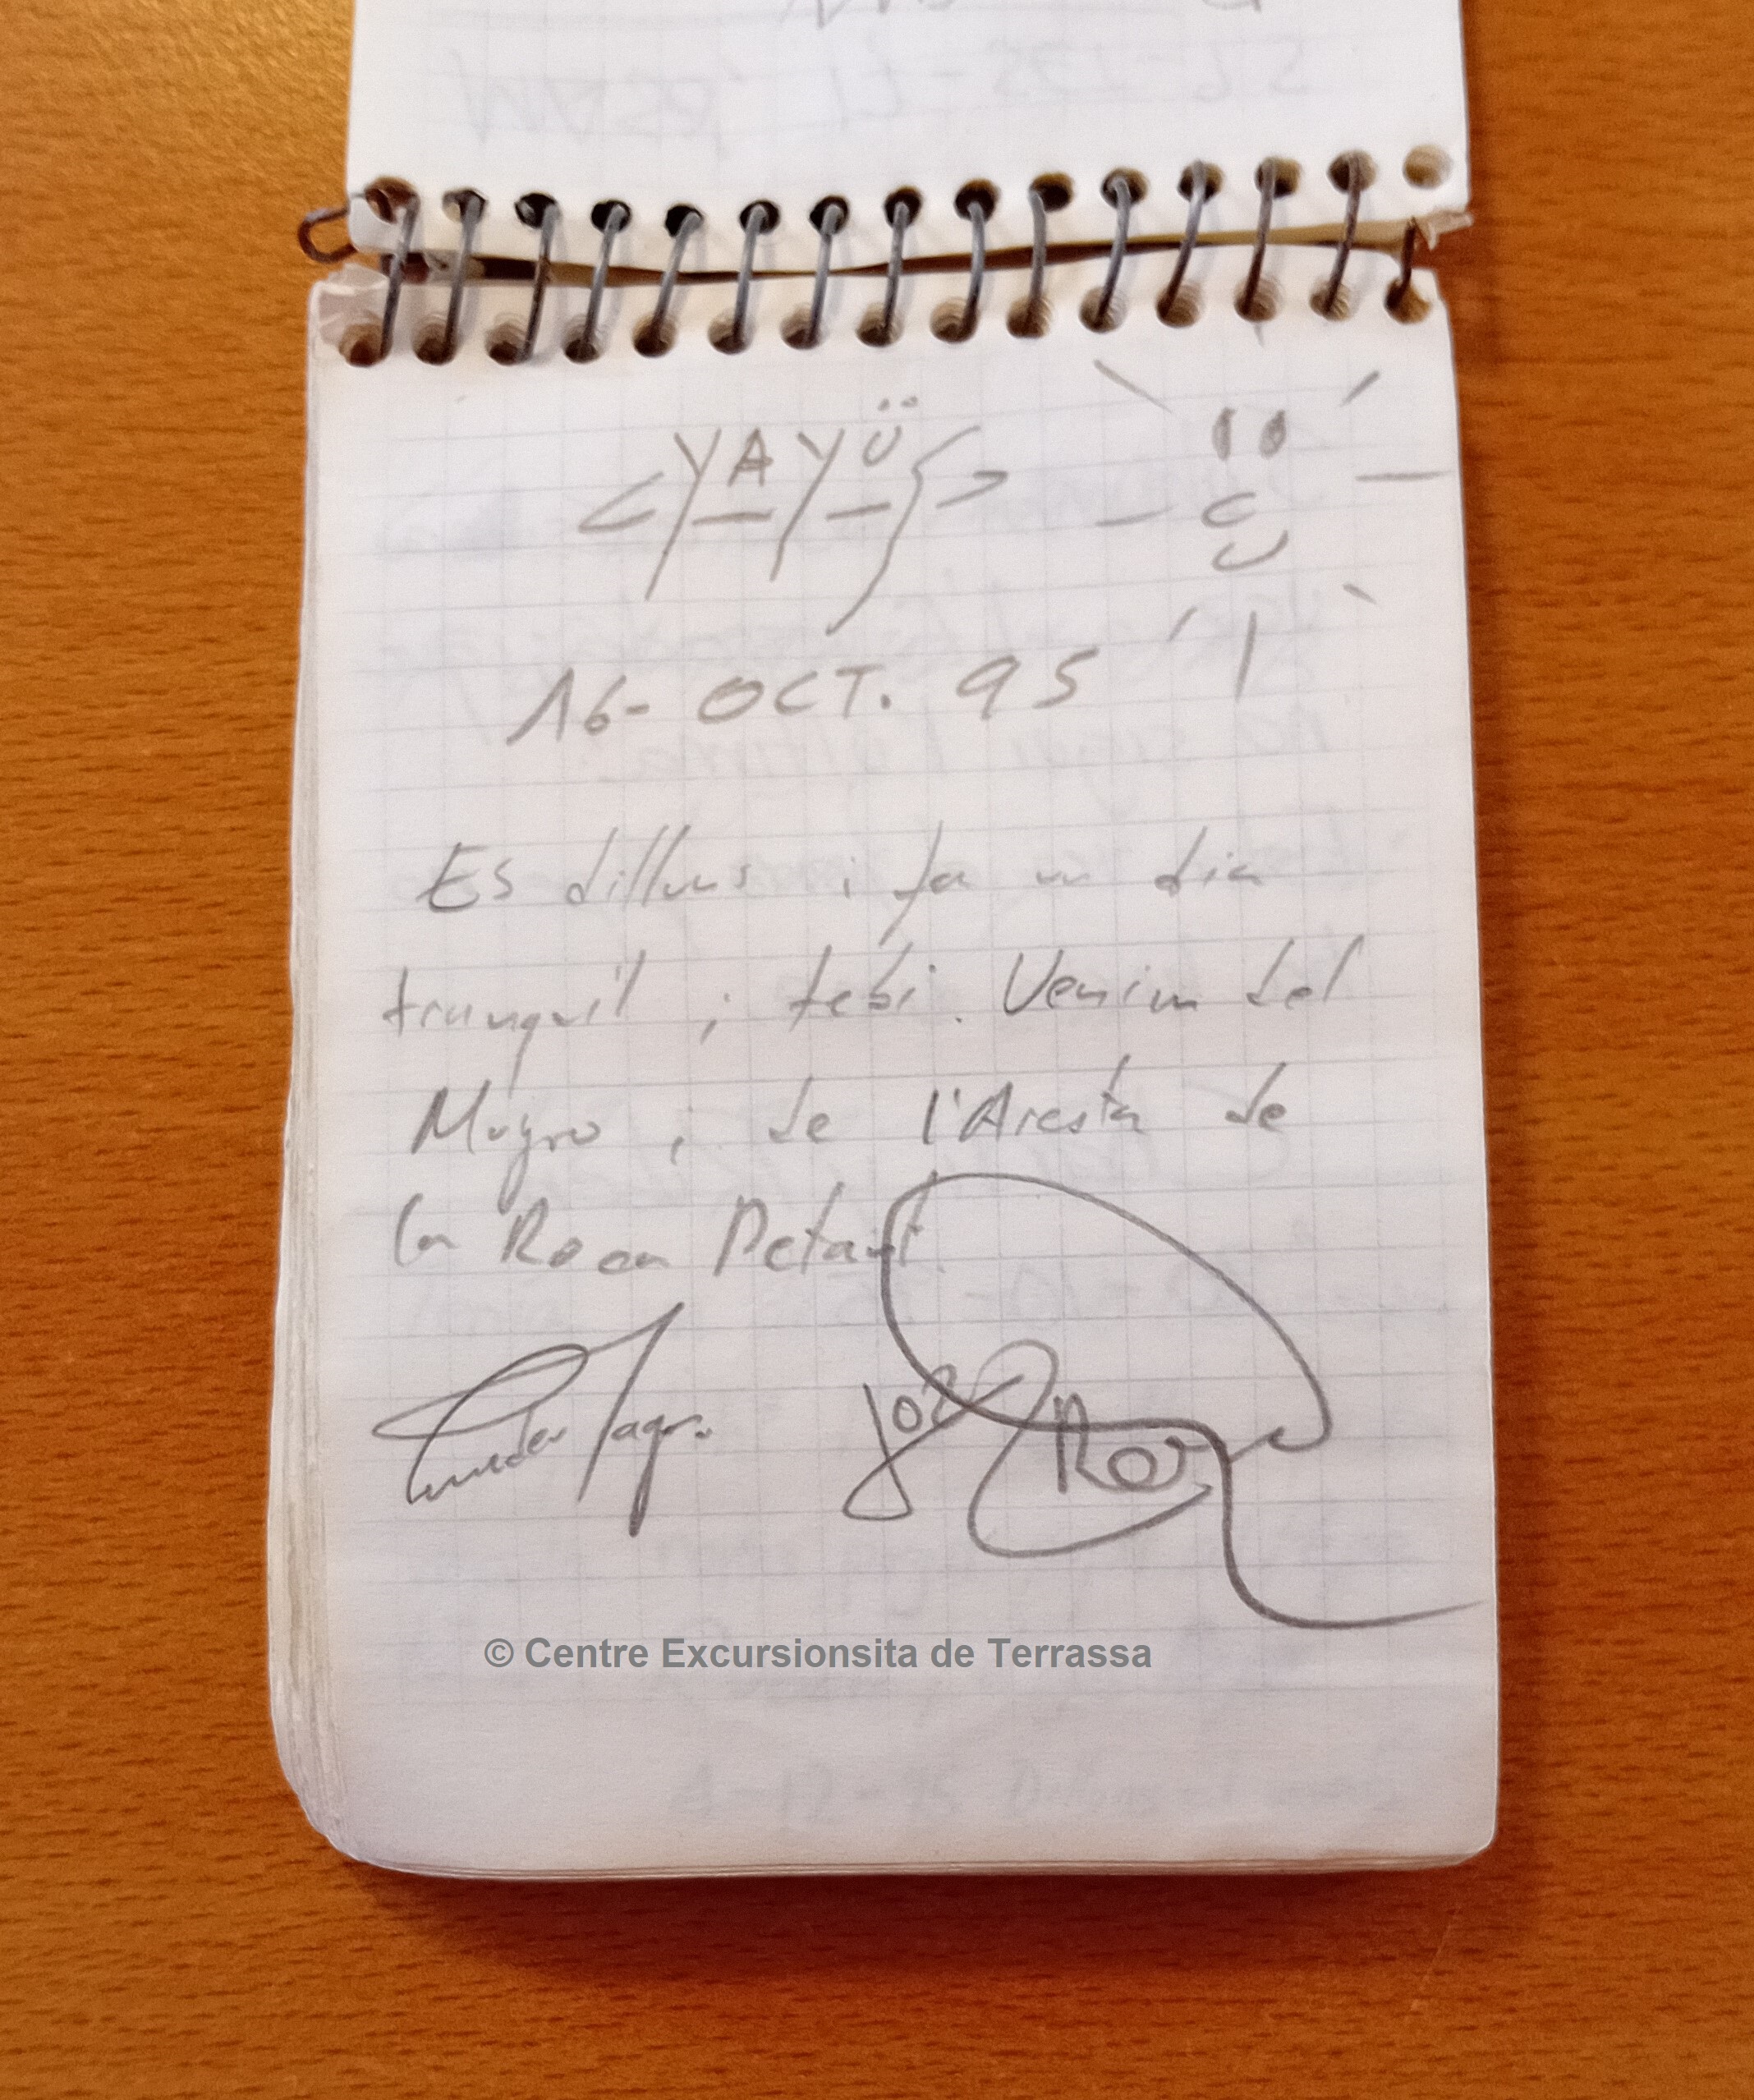 YAYÜ
16- OCT. 95
Es dilluns i fa un dia
tranquil i tebi. Venim del
Mugró i de l'Aresta de
la Roca Petant.
Roi
© Centre Excursionsita de Terrassa